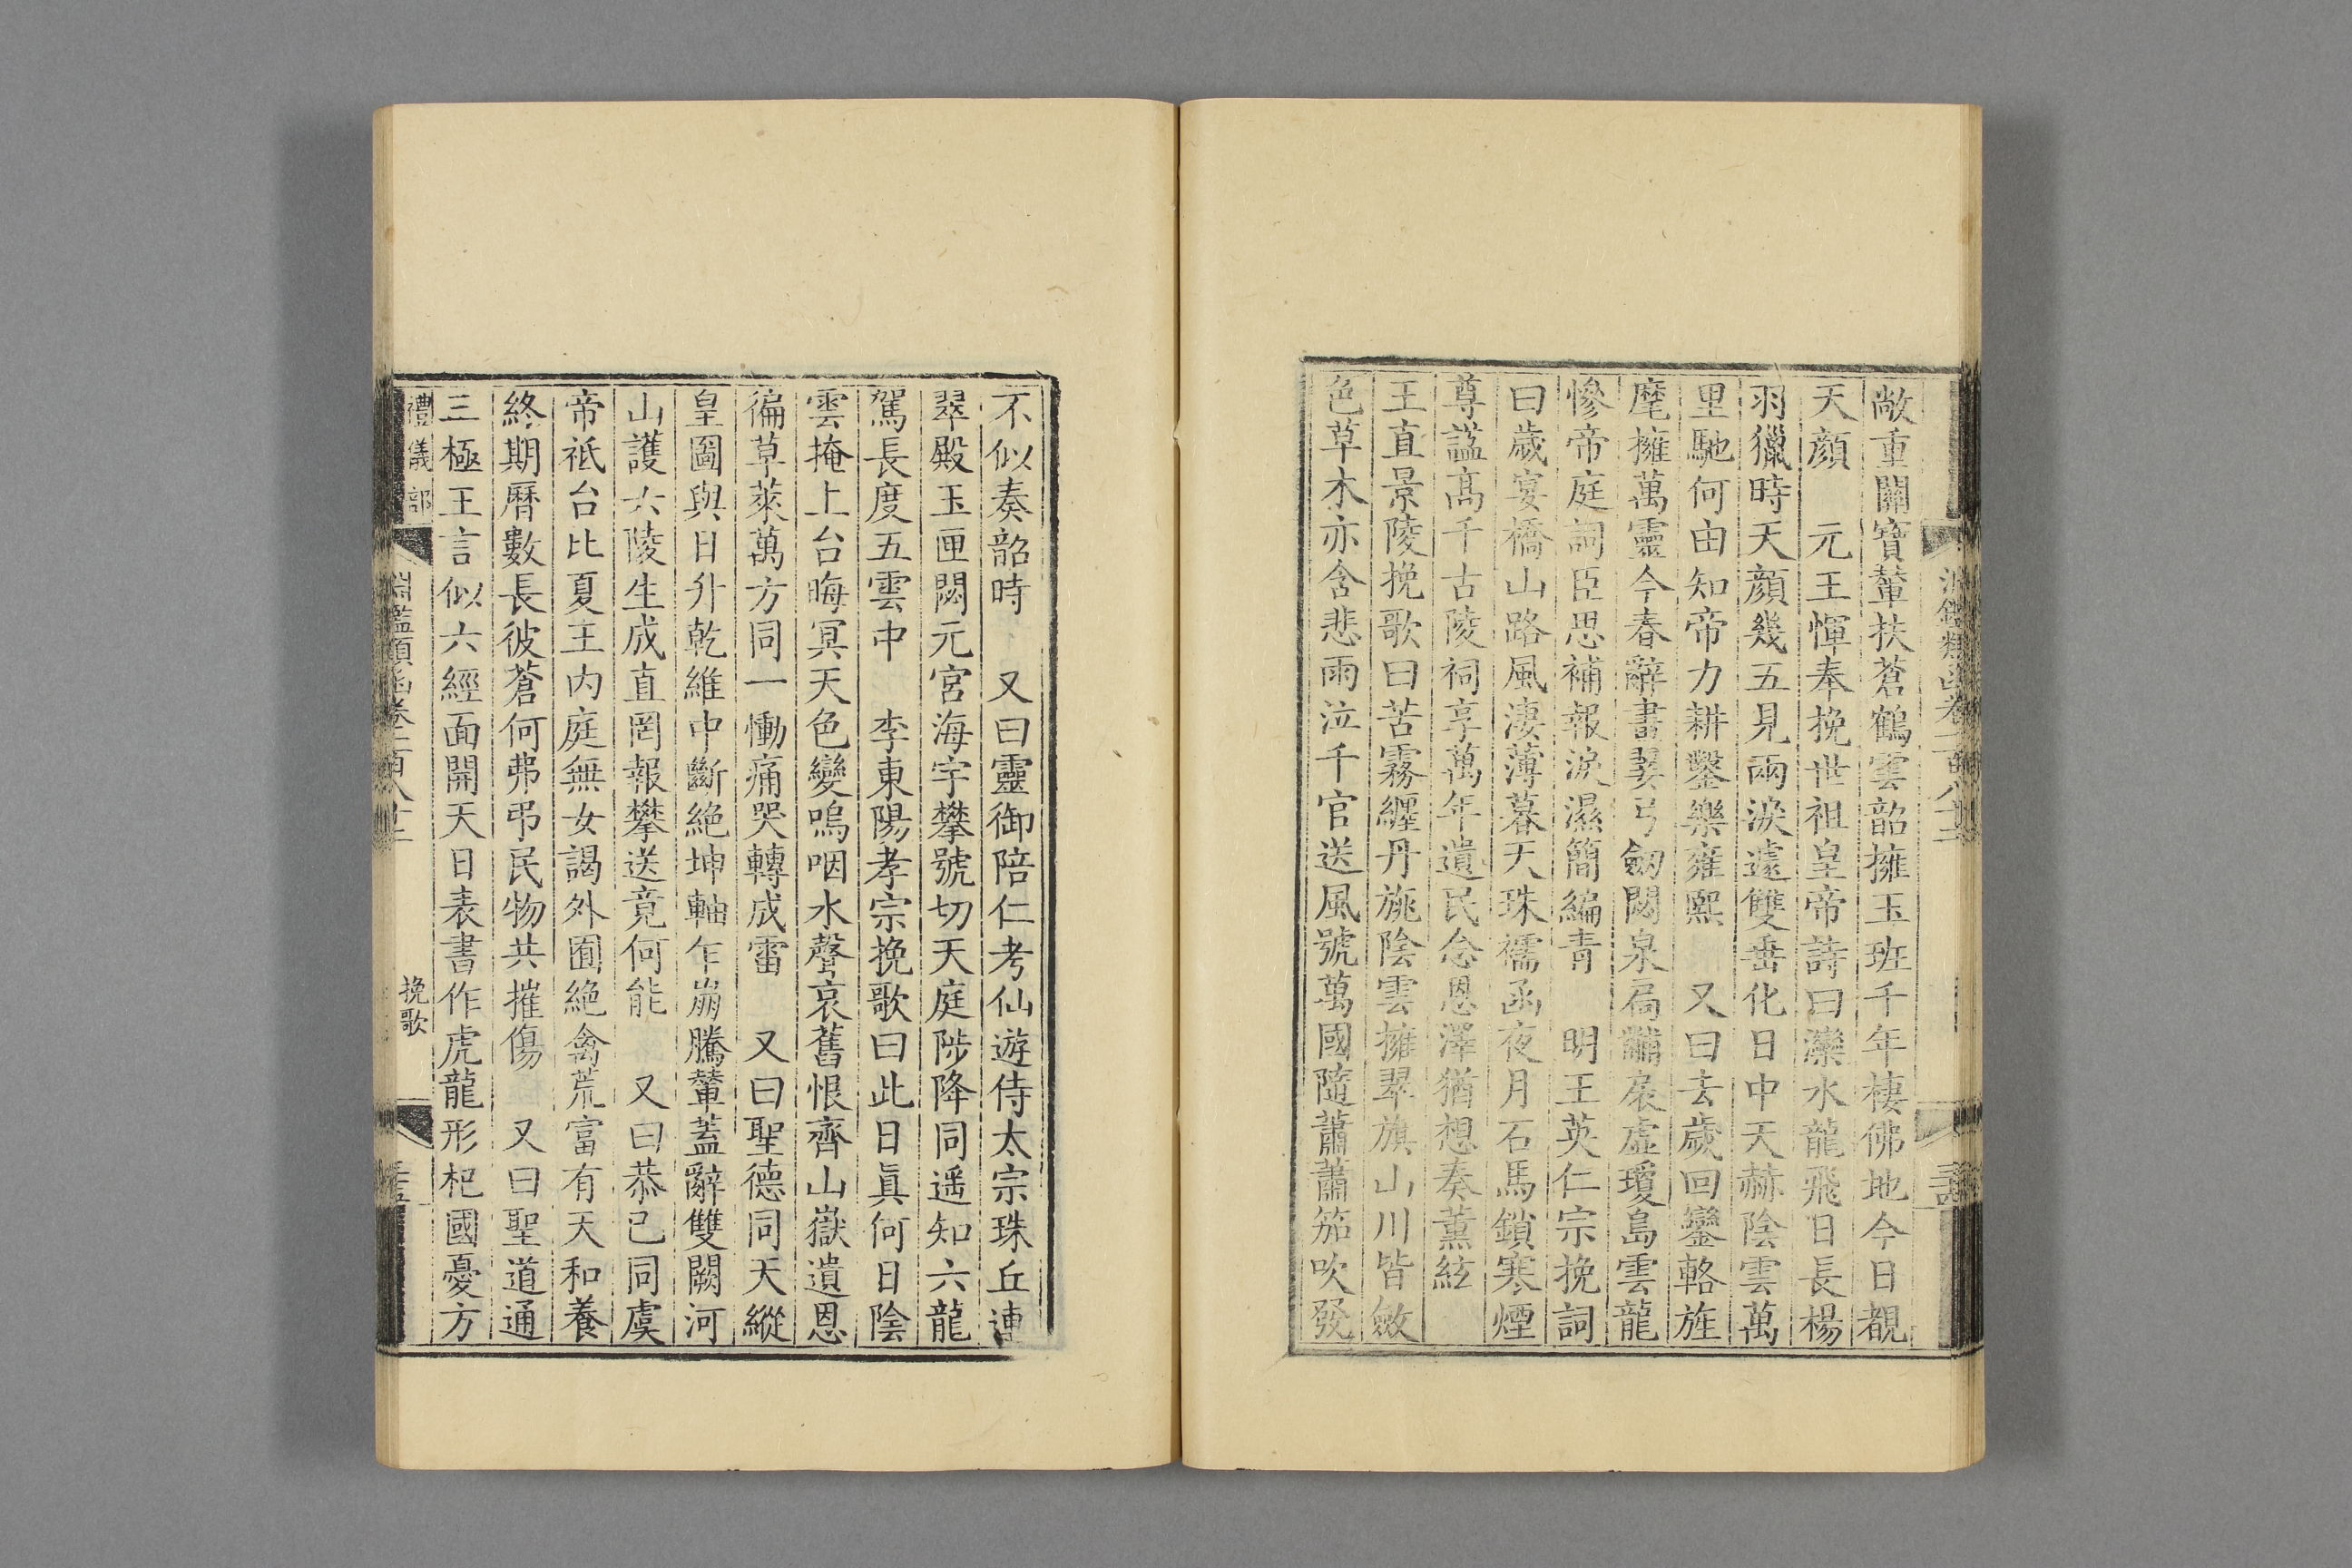 淵鑑類函卷一百八十二
敞重關寶輦扶蒼鶴雲韶擁玉班千年棲佛地今日覩
天顏　元王惲奉挽世祖皇帝詩曰灤水龍飛日長楊
羽獵時天顏幾五見兩淚遽雙垂化日中天赫陰雲萬
里馳何由知帝力耕鑿樂雍熙　又曰去歲回鑾輅旌
麾擁萬靈今春辭書翣弓劒閟泉扃黼扆虛瓊島雲龍
慘帝庭詞臣思補報淚濕簡編青　明王英仁宗挽詞
曰歲宴橋山路風淒薄暮天珠襦函夜月石馬鎖寒煙
尊諡高千古陵祠享萬年遺民念恩澤猶想奏薰絃
王直景陵挽歌曰苦霧纏丹旐陰雲擁翠旗山川皆斂
色草木亦含悲雨泣千官送風號萬國隨蕭蕭笳吹發
不似奏韶時　又曰靈御陪仁考仙遊侍太宗珠丘連
翠殿玉匣閟元宮海宇攀號切天庭陟降同遥知六龍
駕長度五雲中　李東陽孝宗挽歌曰此日眞何日陰
雲掩上台晦冥天色變嗚咽水聲哀舊恨齊山嶽遺恩
徧草萊萬方同一慟痛哭轉成雷　又曰聖德同天縱
皇圖與日升乾維中斷絕坤軸乍崩騰輦蓋辭雙闕河
山護六陵生成直罔報攀送竟何能　又曰恭己同虞
帝祗台比夏王内庭無女謁外囿絕禽荒富有天和養
終期曆數長彼蒼何弗弔民物共摧傷　又曰聖道通
三極王言似六經面開天日表書作虎龍形杞國憂方
禮儀部　淵鑑類函卷一百八十二　挽歌